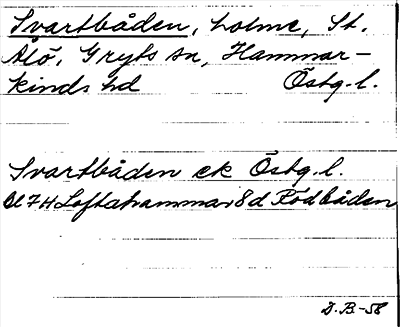 Svartbåden, holme, St.
Ålö, Gryts sn, Hammar-
kinds hd Östg. l.
Svartbåden ek Östg. l.
Bl 74 Loftahammar 8d Rödbåden
D.B-58